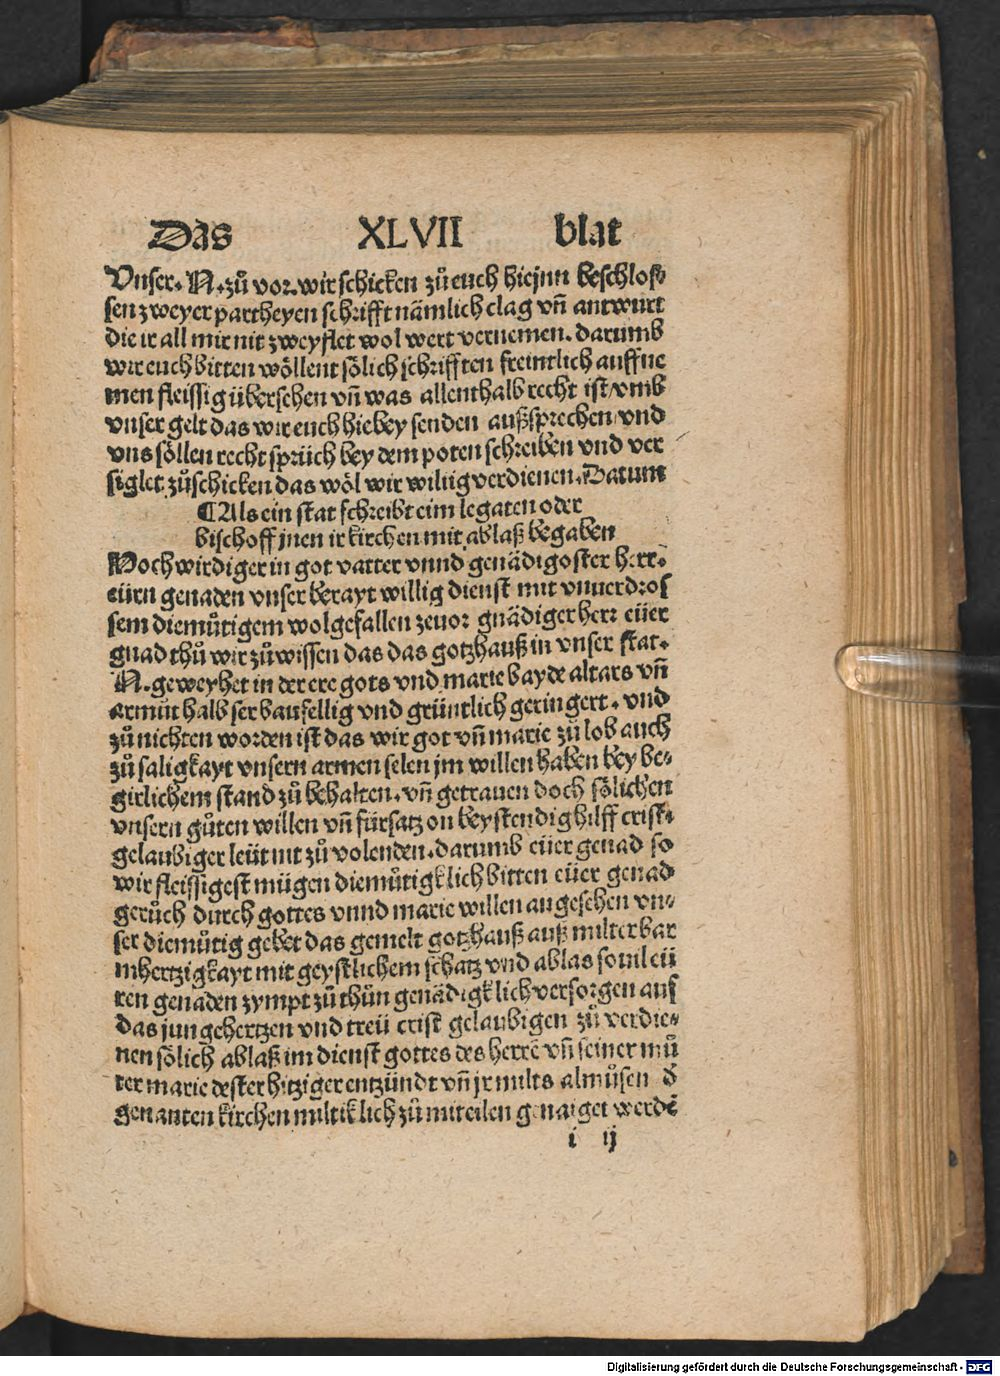 Das XLVII blat
Vnser. N. zů vor. wir schicken zů euch hiejnn beschlos-
sen zweyer partheyen schrifft nämlich clag vn̄ antwurt
die ir all mir nit zweyflet wol wert vernemen. darumb
wir euch bitten wöllent sölich schrifften freintlich auffne
men fleissig übersehen vn̄ was allenthalb recht ist/vmb
vnser gelt das wir euch hiebey senden außsprechen/vnd
vns söllen recht sprüch bey dem poten schreiben vnd ver
siglet zůschicken das wöl wir willig verdienen. Datum
¶Als ein stat schreibt eim legaten oder
bischoff jnen ir kirchen mit ablaß begaben
Hochwirdiger in got vatter vnnd genädigoster herr.
eürn genaden vnser berayt willig dienst mit vnuerdros
sem diemůtigem wolgefallen zeuor gnädiger herr eüer
gnad thů wir zů wissen das das gotzhauß in vnser stat.
N. geweyhet in der ere gots vnd marie bayde altars vn̄
armůt halb ser baufellig vnd grüntlich geringert. vnd
zů nichten worden ist das wir got vn̄ marie zů lob auch
zů saligkayt vnsern armen selen jm willen haben bey be-
girlichem stand zů behalten. vn̄ getrauen doch sölichen
vnsern gůten willen vn̄ fürsatz on beystendig hilff crist-
gelaubiger leüt nit zů volenden. darumb eüer genad so
wir fleissigest mügen diemůtigklich bitten eüer genad
gerůch durch gottes vnnd marie willen angesehen vn-
ser diemůtig gebet das gemelt gotzhauß auß milter bar
mhertzigkayt mit geystlichem schatz vnd ablas souil eü
ren genaden zympt zů thůn genädigklich versorgen auf
das jungehertzen vnd treü crist gelaubigen zů verdie-
nen sölich ablaß im dienst gottes des herrē vn̄ seiner mů
ter marie dester hitziger entzündt vn̄ jr milts almůsen d̄
genanten kirchen miltiklich zů miteilen genaiget werdē
i ij
Digitalisierung gefördert durch die Deutsche Forschungsgemeinschaft - DFG